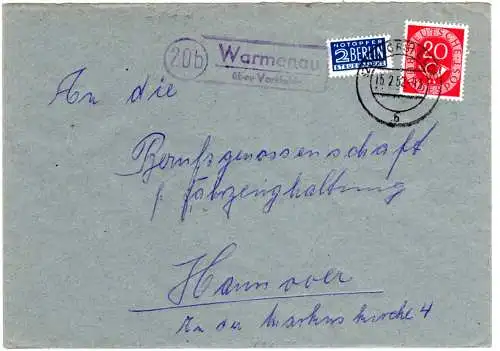 20b
Warmenau
über
NOTOPFER
2 BERLIN
STEUERMARKE
DEUTSCHE
20
POST
15.2.52
b
An die
Berufsgenossenschaft
f. Fahrzeughaltung
Hannover
An der Markuskirche 4